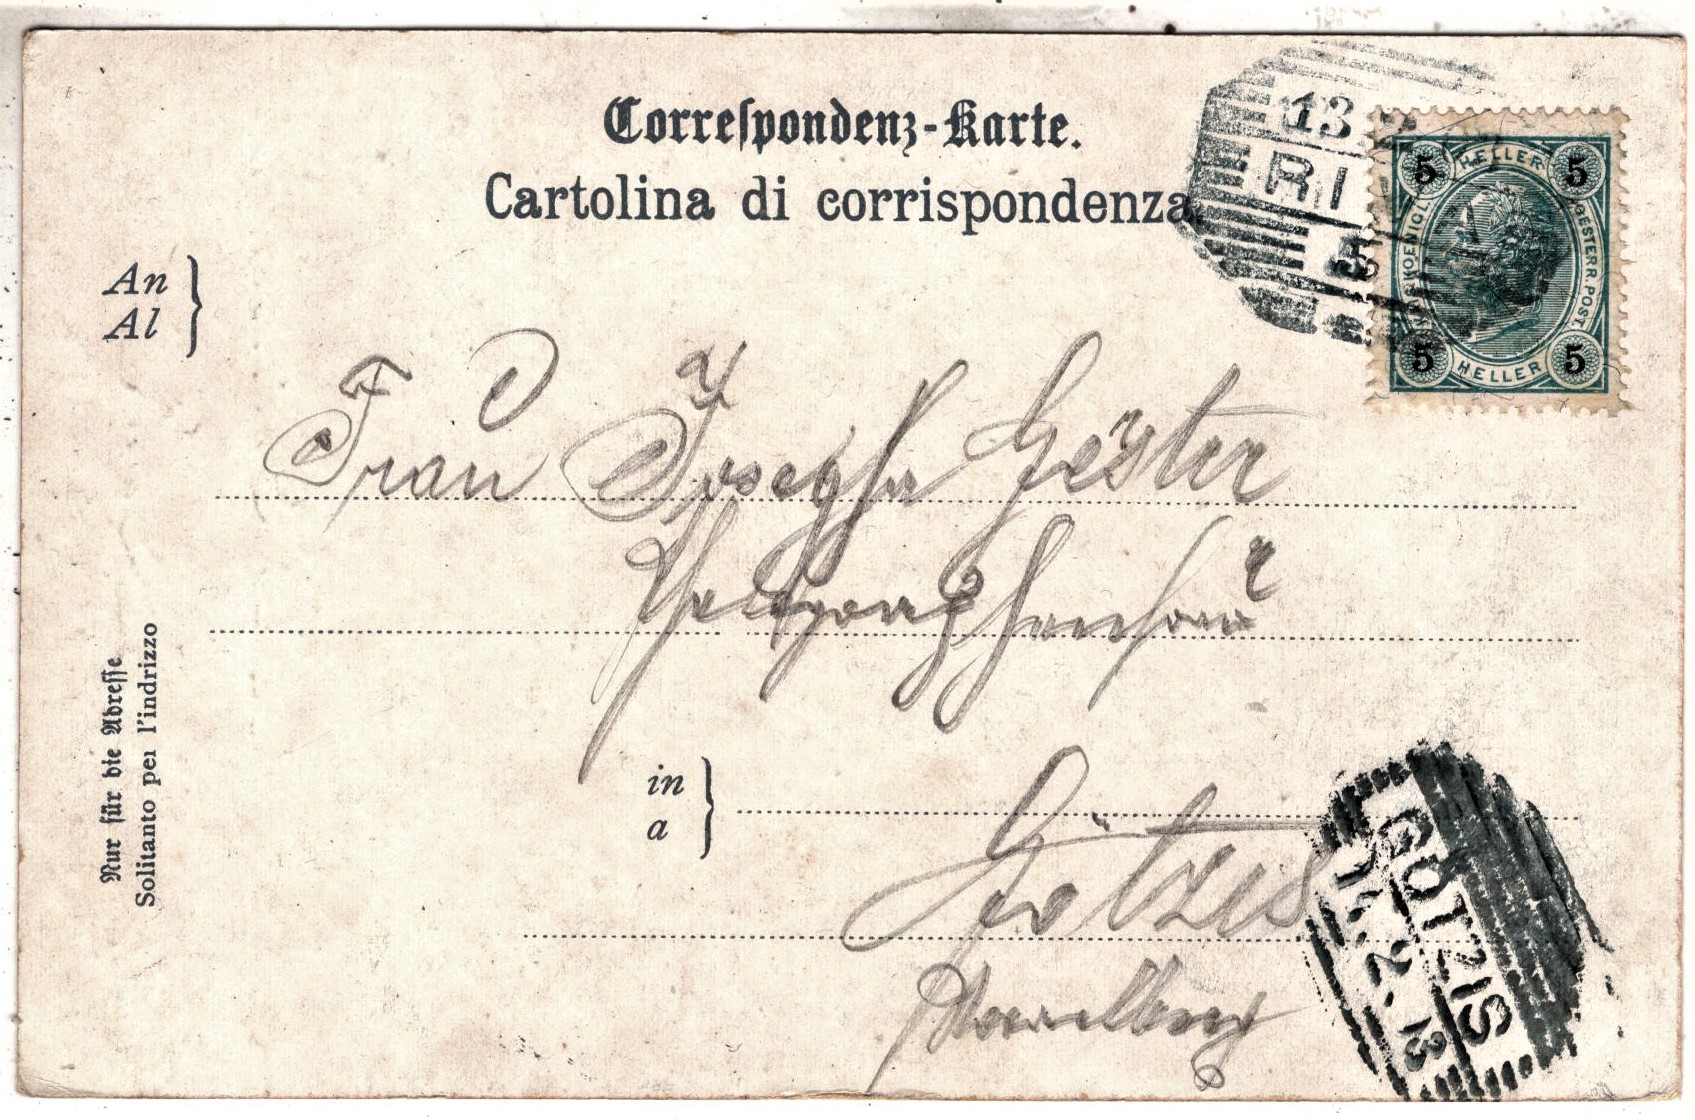 Correspondenz-Karte.
Cartolina di corrispondenza.
13
RI
5
5 HELLER 5
OESTERR. POST.
5 HELLER 5
An
Al
Frau Josepha
in
a
Götzis
Vorarlberg
GÖTZIS
Nur für die Adresse
Solitanto per l'indrizzo